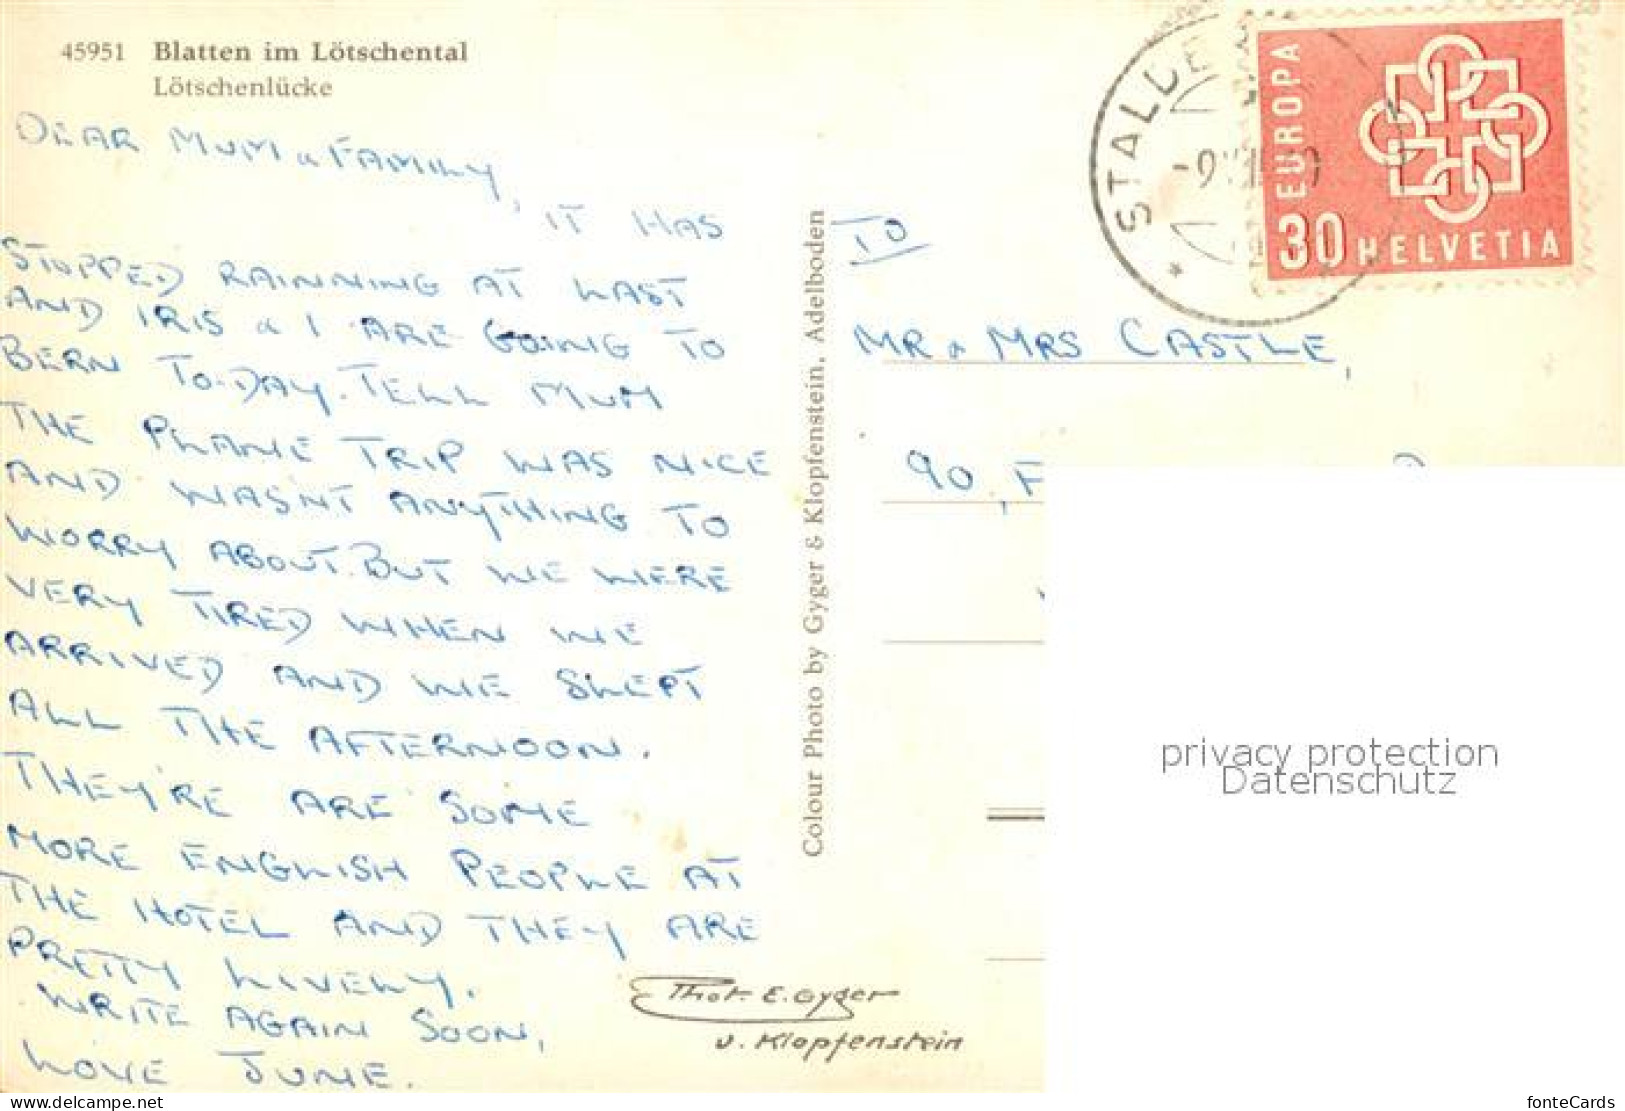 45951 Blatten im Lötschental
Lötschenlücke
DEAR MUM & FAMILY,
IT HAS
STOPPED RAINNING AT LAST
AND IRIS & I ARE GOING TO
BERN TO-DAY. TELL MUM
THE PLANE TRIP WAS NICE
AND WASNT ANYTHING TO
WORRY ABOUT. BUT WE WERE
VERY TIRED WHEN WE
ARRIVED AND WE SLEPT
ALL THE AFTERNOON.
THEY'RE ARE SOME
MORE ENGLISH PEOPLE AT
THE HOTEL AND THEY ARE
PRETTY LIVELY.
WRITE AGAIN SOON,
LOVE JUNE.
Phot. E. Gyger
u. Klopfenstein
Colour Photo by Gyger & Klopfenstein, Adelboden
TO
MR & MRS CASTLE,
90, F
STALDE
EUROPA
30 HELVETIA
privacy protection
Datenschutz
www.delcampe.net
fonteCards